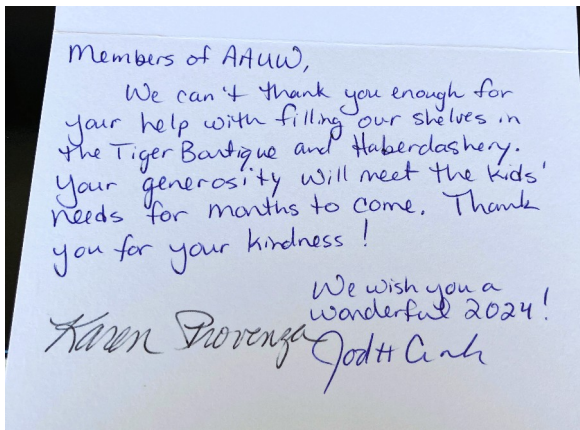 Members of AAUW,
We can't thank you enough for
your help with filling our shelves in
the Tiger Boutique and Haberdashery.
Your generosity will meet the kids'
needs for months to come. Thank
you for your kindness!
We wish you a
wonderful 2024!
Karen Provenza